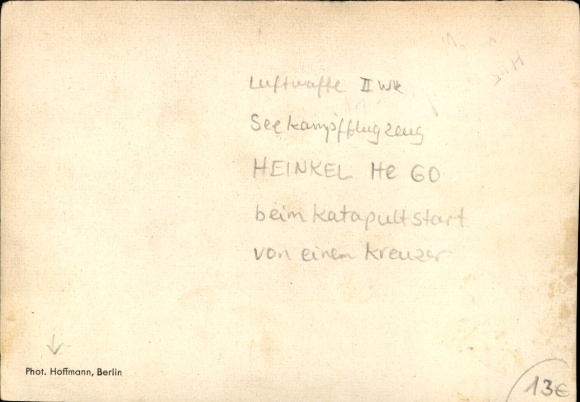 Luftwaffe II WK
Seekampfflugzeug
HEINKEL He 60
beim Katapultstart
von einem Kreuzer
Phot. Hoffmann, Berlin
13€